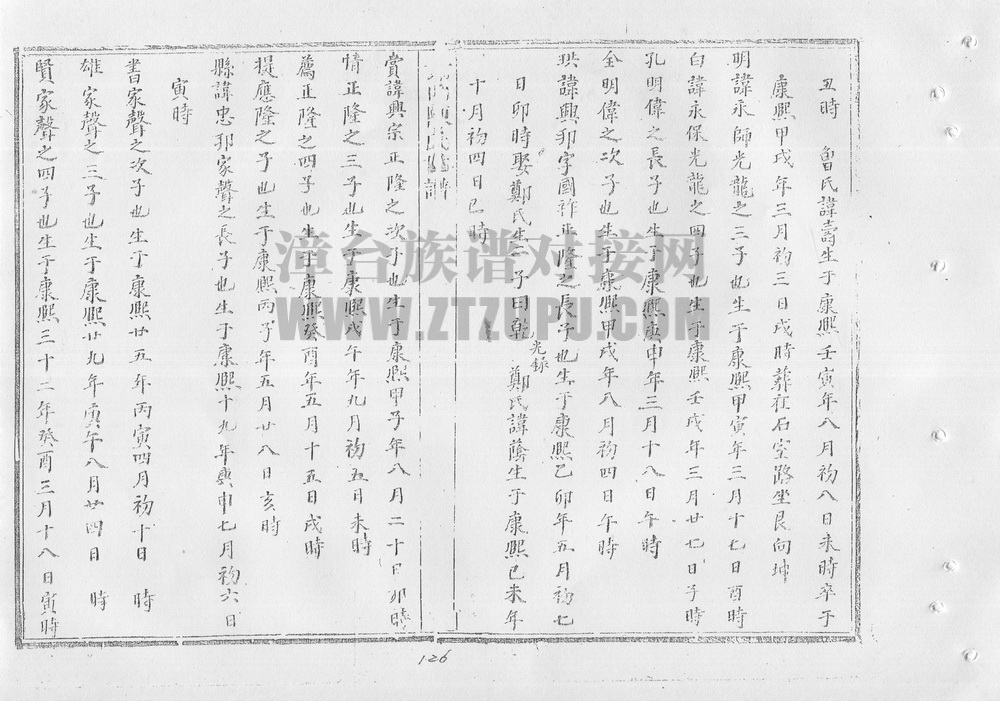 丑時　曾氏諱壽生于康熙壬寅年八月初八日未時卒于
康熙甲戌年三月初三日戌時葬在石室路坐艮向坤
明諱永師光龍之三子也生于康熙甲寅年三月十七日酉時
白諱永保光龍之四子也生于康熙壬戌年三月廿七日子時
孔明偉之長子也生于康熙庚申年三月十八日午時
全明偉之次子也生于康熙甲戌年八月初四日午時
珙諱興邦字國祚正隆之長子也生于康熙乙卯年五月初七
日卯時娶鄭氏生二子曰乾 光錄 鄭氏諱蔭生于康熙己未年
十月初四日巳時
賞諱興宗正隆之次子也生于康熙甲子年八月二十日卯時
情正隆之三子也生于康熙戊午年九月初五日未時
薦正隆之四子也生于康熙癸酉年五月十五日戌時
提應隆之子也生于康熙丙子年五月廿八日亥時
縣諱忠邦家聲之長子也生于康熙十九年庚申七月初六日
寅時
書家聲之次子也生于康熙廿五年丙寅四月初十日　時
雄家聲之三子也生于康熙廿九年庚午八月廿四日　時
賢家聲之四子也生于康熙三十二年癸酉三月十八日寅時
126
漳台族谱对接网
WWW.ZTZUPU.COM